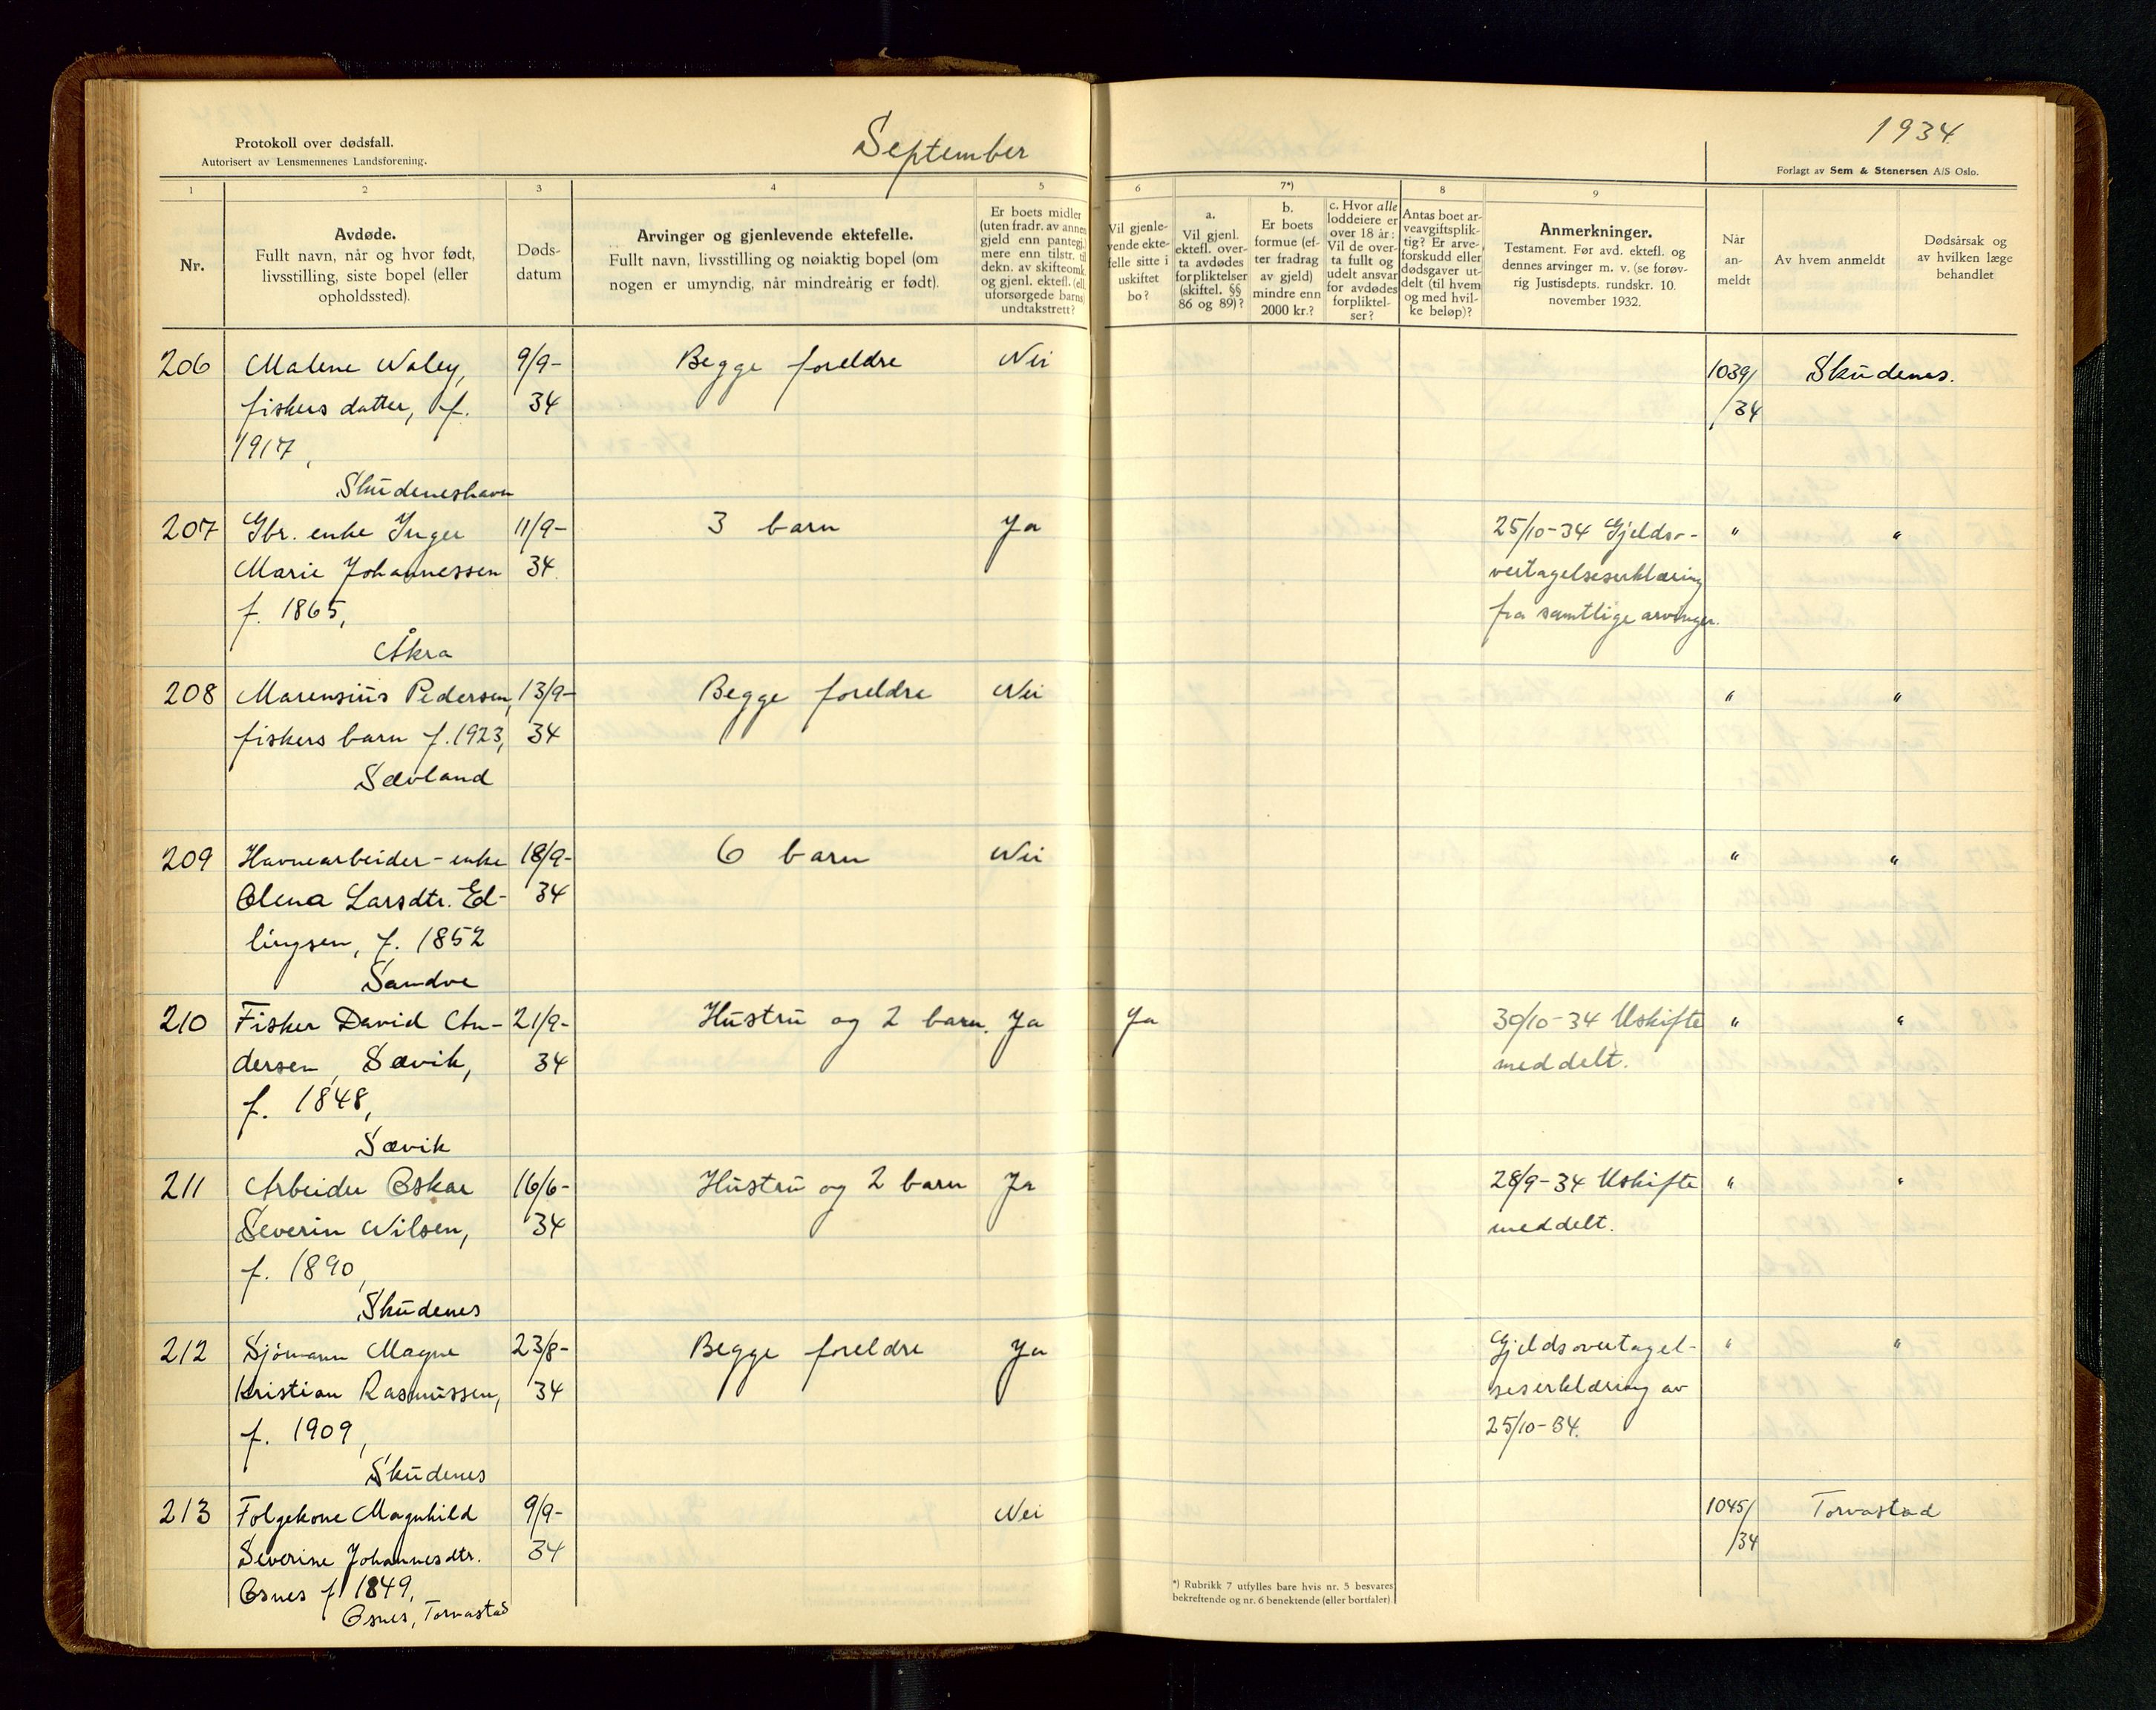 Protokoll over dødsfall.
Autorisert av Lensmennenes Landsforening.
September
1934.
Forlagt av Sem & Stenersen A/S Oslo.
1
2
3
4
5
6
7*)
8
9
Nr.
Avdøde.
Fullt navn, når og hvor født,
livsstilling, siste bopel (eller
opholdssted).
Døds-
datum
Arvinger og gjenlevende ektefelle.
Fullt navn, livsstilling og nøiaktig bopel (om
nogen er umyndig, når mindreårig er født).
Er boets midler
(uten fradr. av annen
gjeld enn pantegj.)
mere enn tilstr. til
dekn. av skifteomk.
og gjenl. ektefl. (ell.
uforsørgede barns)
undtakstrett?
Vil gjenle-
vende ekte-
felle sitte i
uskiftet
bo?
a.
Vil gjenl.
ektefl. over-
ta avdødes
forpliktelser
(skiftel. §§
86 og 89)?
b.
Er boets
formue (ef-
ter fradrag
av gjeld)
mindre enn
2000 kr.?
c. Hvor alle
loddeiere er
over 18 år:
Vil de over-
ta fullt og
udelt ansvar
for avdødes
forpliktel-
ser?
Antas boet ar-
veavgiftsplik-
tig? Er arve-
forskudd eller
dødsgaver ut-
delt (til hvem
og med hvil-
ke beløp)?
Anmerkninger.
Testament. Før avd. ektefl. og
dennes arvinger m. v. (se forøv-
rig Justisdepts. rundskr. 10.
november 1932.
Når
an-
meldt
Av hvem anmeldt
Dødsårsak og
av hvilken læge
behandlet
206 Malene Valey, 9/9- Begge foreldre Nei 1039/ Skudenes.
fiskers datter, f. 34 /34
1917,
Skudeneshavn
207 Gbr. enke Inger 11/9- 3 barn Ja 25/10-34 Gjeldso- " "
Marie Johannessen 34. vertagelseserklæring
f. 1865, fra samtlige arvinger.
Åkra
208 Marensius Pedersen, 13/9- Begge foreldre Nei " "
fiskers barn f. 1923, 34
Sævland
209 Havnearbeider-enke 18/9- 6 barn Nei " "
Olena Larsdtr. Ed- 34
lingsen, f. 1852
Sandve
210 Fisker David An- 21/9- Hustru og 2 barn. Ja Ja 30/10-34 Uskifte " "
dersen, Sævik, 34 meddelt.
f. 1848,
Sævik
211 Arbeider Oskar 16/6- Hustru og 2 barn Ja 28/9-34 Uskifte " "
Severin Nilsen, 34 meddelt.
f. 1890,
Skudenes
212 Sjømann Magne 23/8- Begge foreldre Ja Gjeldsovertagel- " "
Kristian Rasmussen, 34 seserklæring av
f. 1909, 25/10-34.
Skudenes
213 Folgekone Magnhild 9/9- Nei 1045/ Torvastad
Severine Johannesdtr. 34 /34
Osnes f. 1849,
Osnes, Torvastad
*) Rubrikk 7 utfylles bare hvis nr. 5 besvares
bekreftende og nr. 6 benektende (eller bortfaler).